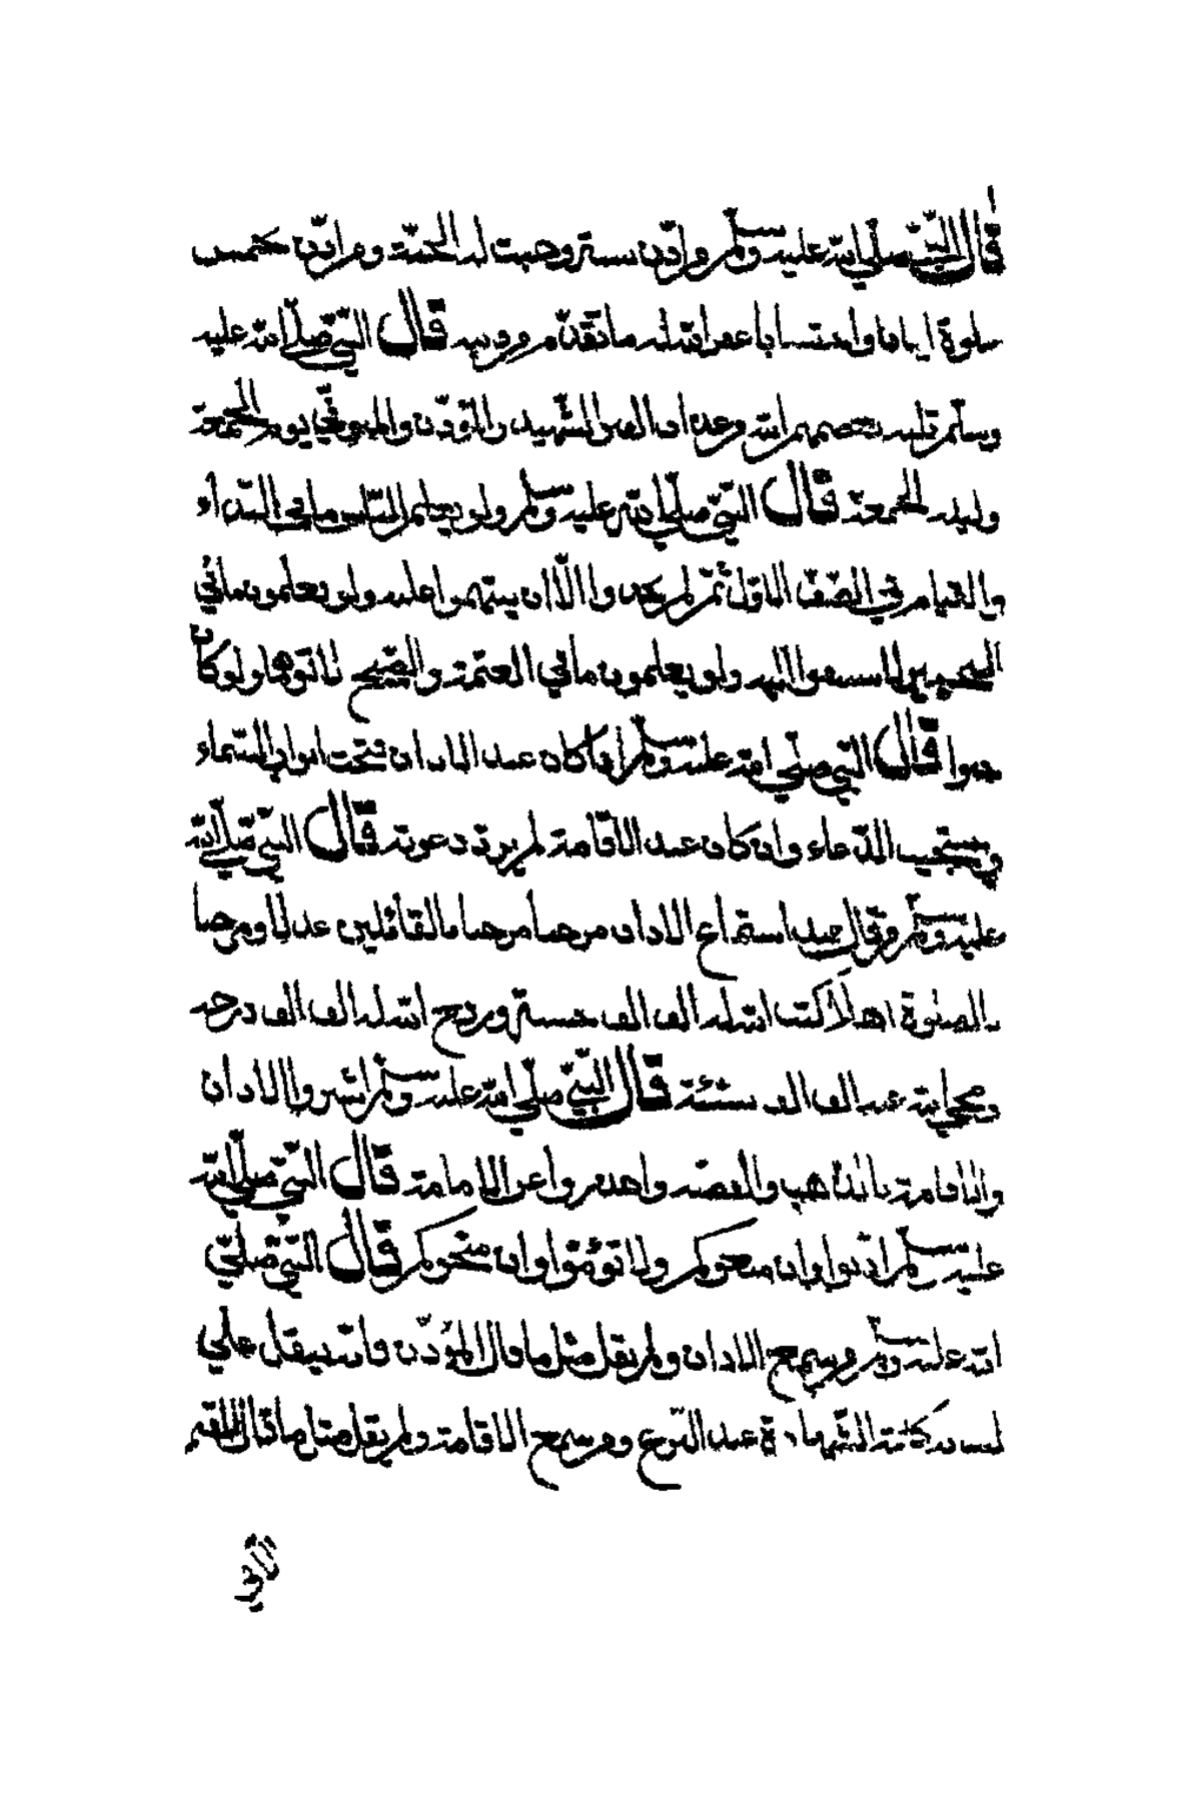 قال النبي صلي الله عليه وسلم من اذن سنة وجبت له الجنة ومن اذن خمس
صلوة ايمانا واحتسابا غفر الله له ما تقدم من ذنبه قال النبي صلي الله عليه
وسلم ثلثة يعصمهم الله من عذاب القبر الشهيد والمؤذن والمتوفي يوم الجمعة
وليلة الجمعة قال النبي صلي الله عليه وسلم ولو يعلم الناس ما في النداء
والقيام في الصف الاول ثم لم يجدوا الا ان يستهموا عليه ولو يعلمون ما في
التهجير لاستبقوا اليه ولو يعلمون ما في العتمة والصبح لاتوهما ولو كان
حبوا قال النبي صلي الله عليه وسلم اذا كان عند الاذان فتحت ابواب السماء
ويستجيب الدعاء وان كان عند الاقامة لم يرد دعوته قال النبي صلي الله
عليه وسلم من قال عند استماع الاذان مرحبا مرحبا بالقائلين عدلا ومرحبا
بالصلوة اهلا كتب الله له الف الف حسنة ورفع الله له الف الف درجة
ومحي الله عنه الف الف سيئة قال النبي صلي الله عليه وسلم اشتروا الاذان
والاقامة بالذهب والفضة واحذروا عن الامامة قال النبي صلي الله
عليه وسلم اذنوا وان منعوكم ولا تؤموا وان منحوكم قال النبي صلي
الله عليه وسلم من سمع الاذان ولم يقل مثل ما قال المؤذن فانه يثقل علي
لسانه كلمة الشهادة عند النزع ومن سمع الاقامة ولم يقل مثل ما قال المقيم